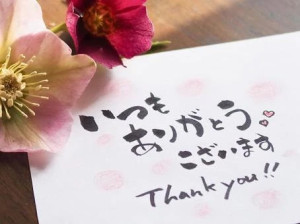 いつも
ありがとう♡
ございます
Thank you!!